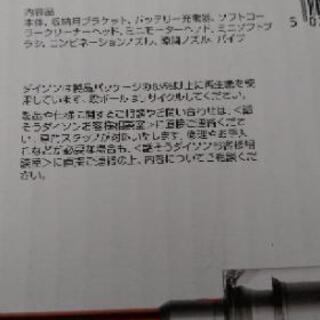 内容品
本体、収納用ブラケット、バッテリー充電器、ソフトロー
ラークリーナーヘッド、ミニモーターヘッド、ミニソフトブ
ラシ、コンビネーションノズル、隙間ノズル、パイプ
ダイソンは製品パッケージの以上に再生紙を使
用しています。段ボールはリサイクルしてください。
製品や仕様に関するご相談やお問い合わせは、<話
そうダイソンお客様相談室>に直接ご連絡くださ
い。専門スタッフが対応いたします。修理やお手入
れなどが必要な場合も、<話そうダイソンお客様相
談室>に直接ご連絡の上、内容についてご相談くだ
さい。